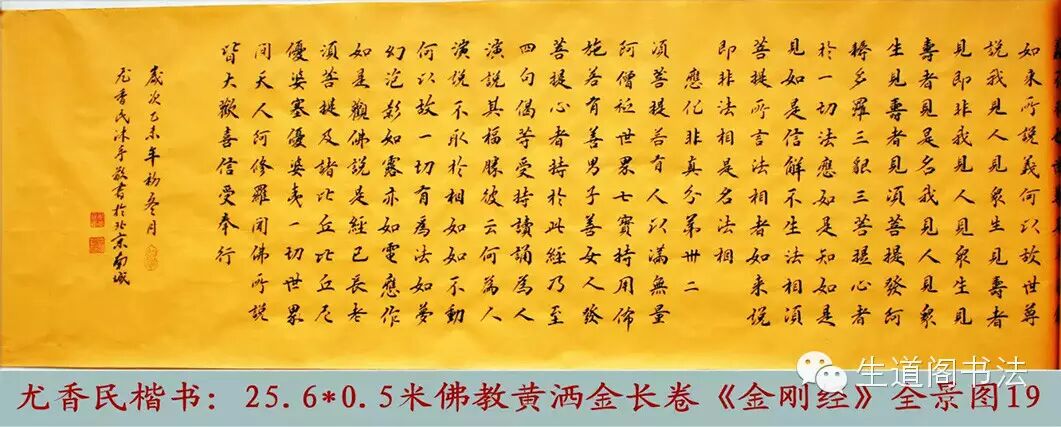 如来所説義何以故世尊
説我見人見衆生見壽者
見即非我見人見衆生見
壽者見是名我見人見衆
生見壽者見須菩提發阿
耨多羅三藐三菩提心者
於一切法應如是知如是
見如是信解不生法相須
菩提所言法相者如来説
即非法相是名法相
應化非真分第卅二
須菩提若有人以滿無量
阿僧祇世界七寶持用佈
施若有善男子善女人發
菩提心者持於此經乃至
四句偈等受持讀誦為人
演説其福勝彼云何為人
演説不取於相如如不動
何以故一切有為法如夢
幻泡影如露亦如電應作
如是觀佛説是經已長老
須菩提及諸比丘比丘尼
優婆塞優婆夷一切世界
間天人阿修羅聞佛所説
皆大歡喜信受奉行
歲次乙未年初冬月
尤香民沐手敬書於北京南城
生道阁书法
尤香民楷书：25.6*0.5米佛教黄洒金长卷《金刚经》全景图19